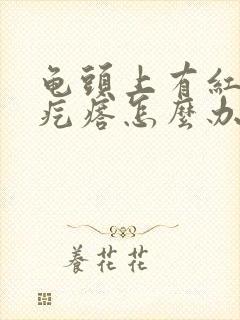 龟頭上有紅
疙瘩怎麽办
養花花